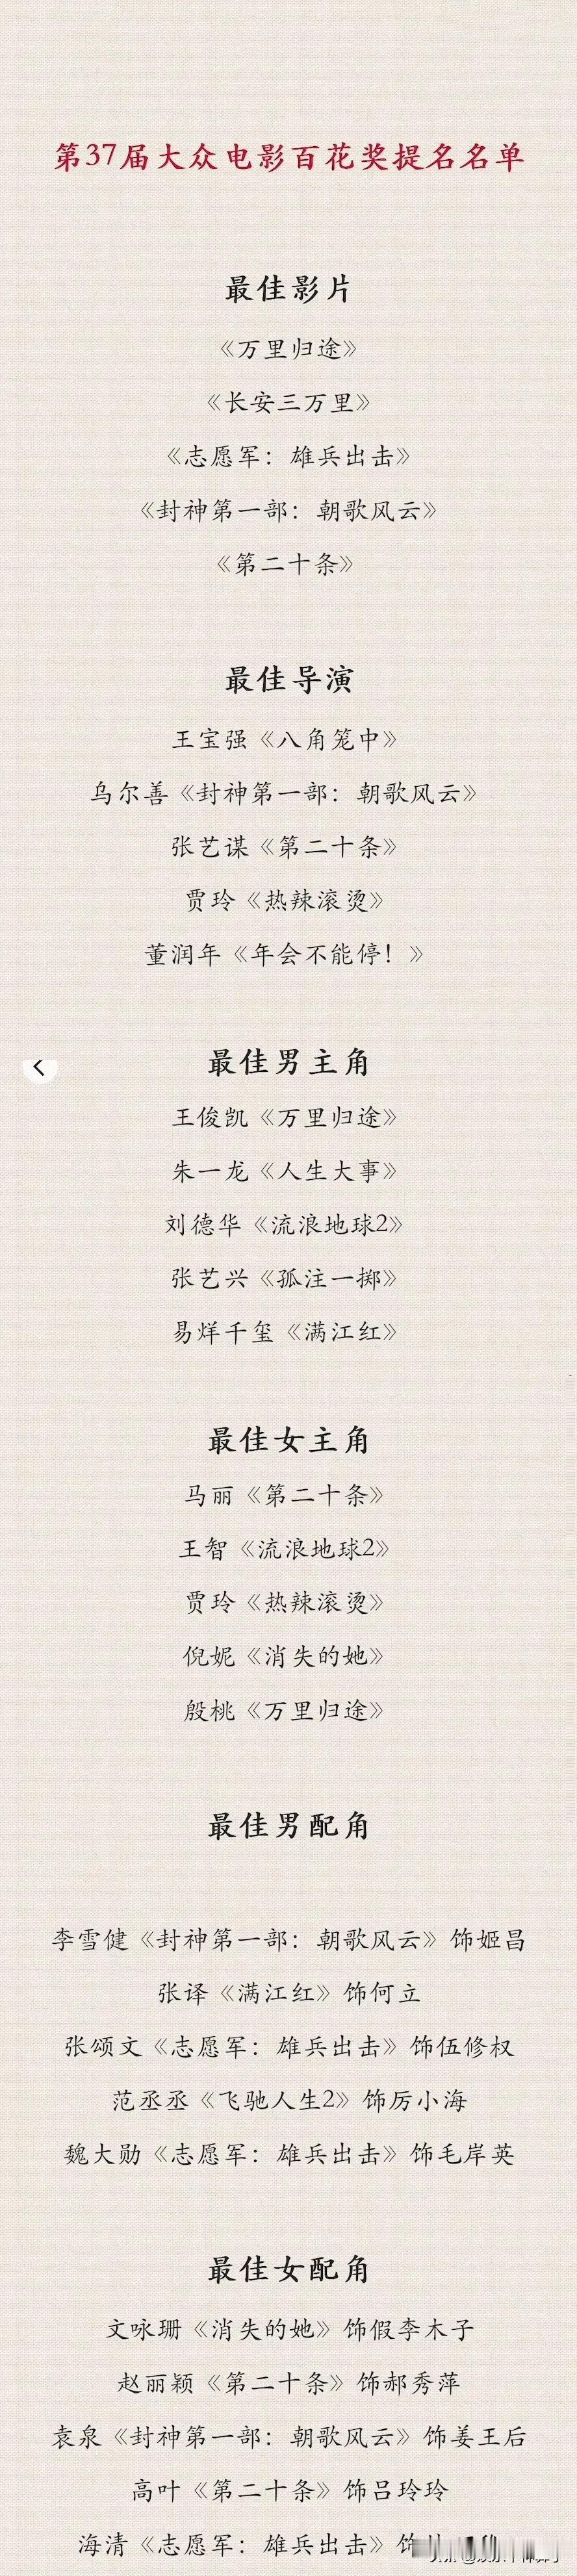 第37届大众电影百花奖提名名单
最佳影片
《万里归途》
《长安三万里》
《志愿军：雄兵出击》
《封神第一部：朝歌风云》
《第二十条》
最佳导演
王宝强《八角笼中》
乌尔善《封神第一部：朝歌风云》
张艺谋《第二十条》
贾玲《热辣滚烫》
董润年《年会不能停！》
最佳男主角
王俊凯《万里归途》
朱一龙《人生大事》
刘德华《流浪地球2》
张艺兴《孤注一掷》
易烊千玺《满江红》
最佳女主角
马丽《第二十条》
王智《流浪地球2》
贾玲《热辣滚烫》
倪妮《消失的她》
殷桃《万里归途》
最佳男配角
李雪健《封神第一部：朝歌风云》饰姬昌
张译《满江红》饰何立
张颂文《志愿军：雄兵出击》饰伍修权
范丞丞《飞驰人生2》饰厉小海
魏大勋《志愿军：雄兵出击》饰毛岸英
最佳女配角
文咏珊《消失的她》饰假李木子
赵丽颖《第二十条》饰郝秀萍
袁泉《封神第一部：朝歌风云》饰姜王后
高叶《第二十条》饰吕玲玲
海清《志愿军：雄兵出击》饰